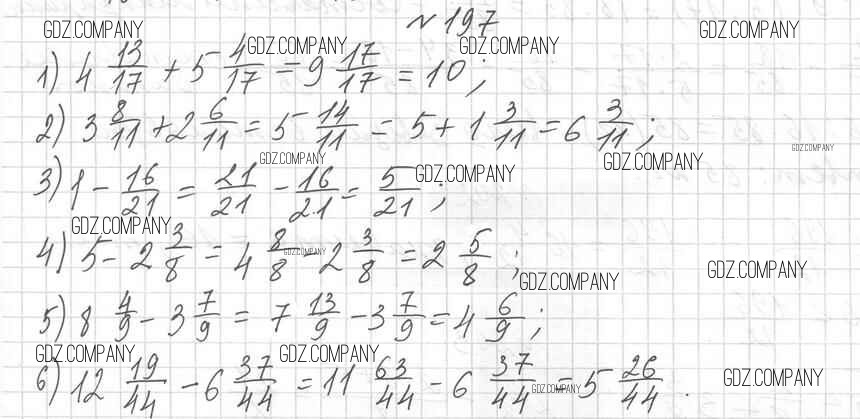 № 197
GDZ.COMPANY GDZ.COMPANY GDZ.COMPANY GDZ.COMPANY
1) 4 13/17 + 5 4/17 = 9 17/17 = 10;
2) 3 8/11 + 2 6/11 = 5 14/11 = 5 + 1 3/11 = 6 3/11;
GDZ.COMPANY
GDZ.COMPANY GDZ.COMPANY GDZ.COMPANY
3) 1 - 16/21 = 21/21 - 16/21 = 5/21;
GDZ.COMPANY
4) 5 - 2 3/8 = 4 8/8 - 2 3/8 = 2 5/8;
GDZ.COMPANY GDZ.COMPANY GDZ.COMPANY
5) 8 4/9 - 3 7/9 = 7 13/9 - 3 7/9 = 4 6/9;
GDZ.COMPANY GDZ.COMPANY
6) 12 19/44 - 6 37/44 = 11 63/44 - 6 37/44 = 5 26/44.
GDZ.COMPANY GDZ.COMPANY